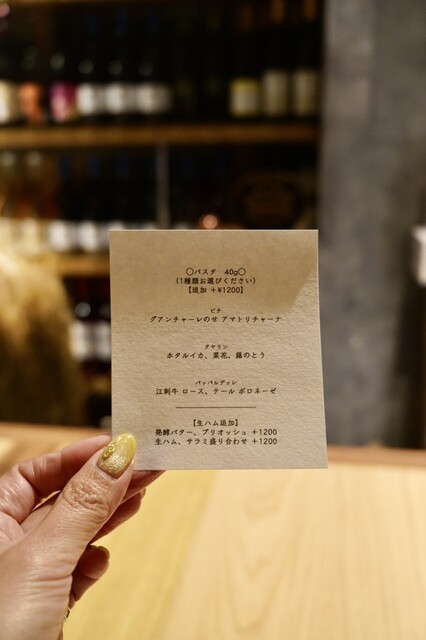 〇パスタ 40g〇
(1種類お選びください)
【追加 +¥1200】
ピチ
グアンチャーレのせ アマトリチャーナ
タヤリン
ホタルイカ、菜花、蕗のとう
パッパルデッレ
江刺牛 ロース、テール ボロネーゼ
【生ハム追加】
発酵バター、ブリオッシュ +1200
生ハム、サラミ盛り合わせ +1200